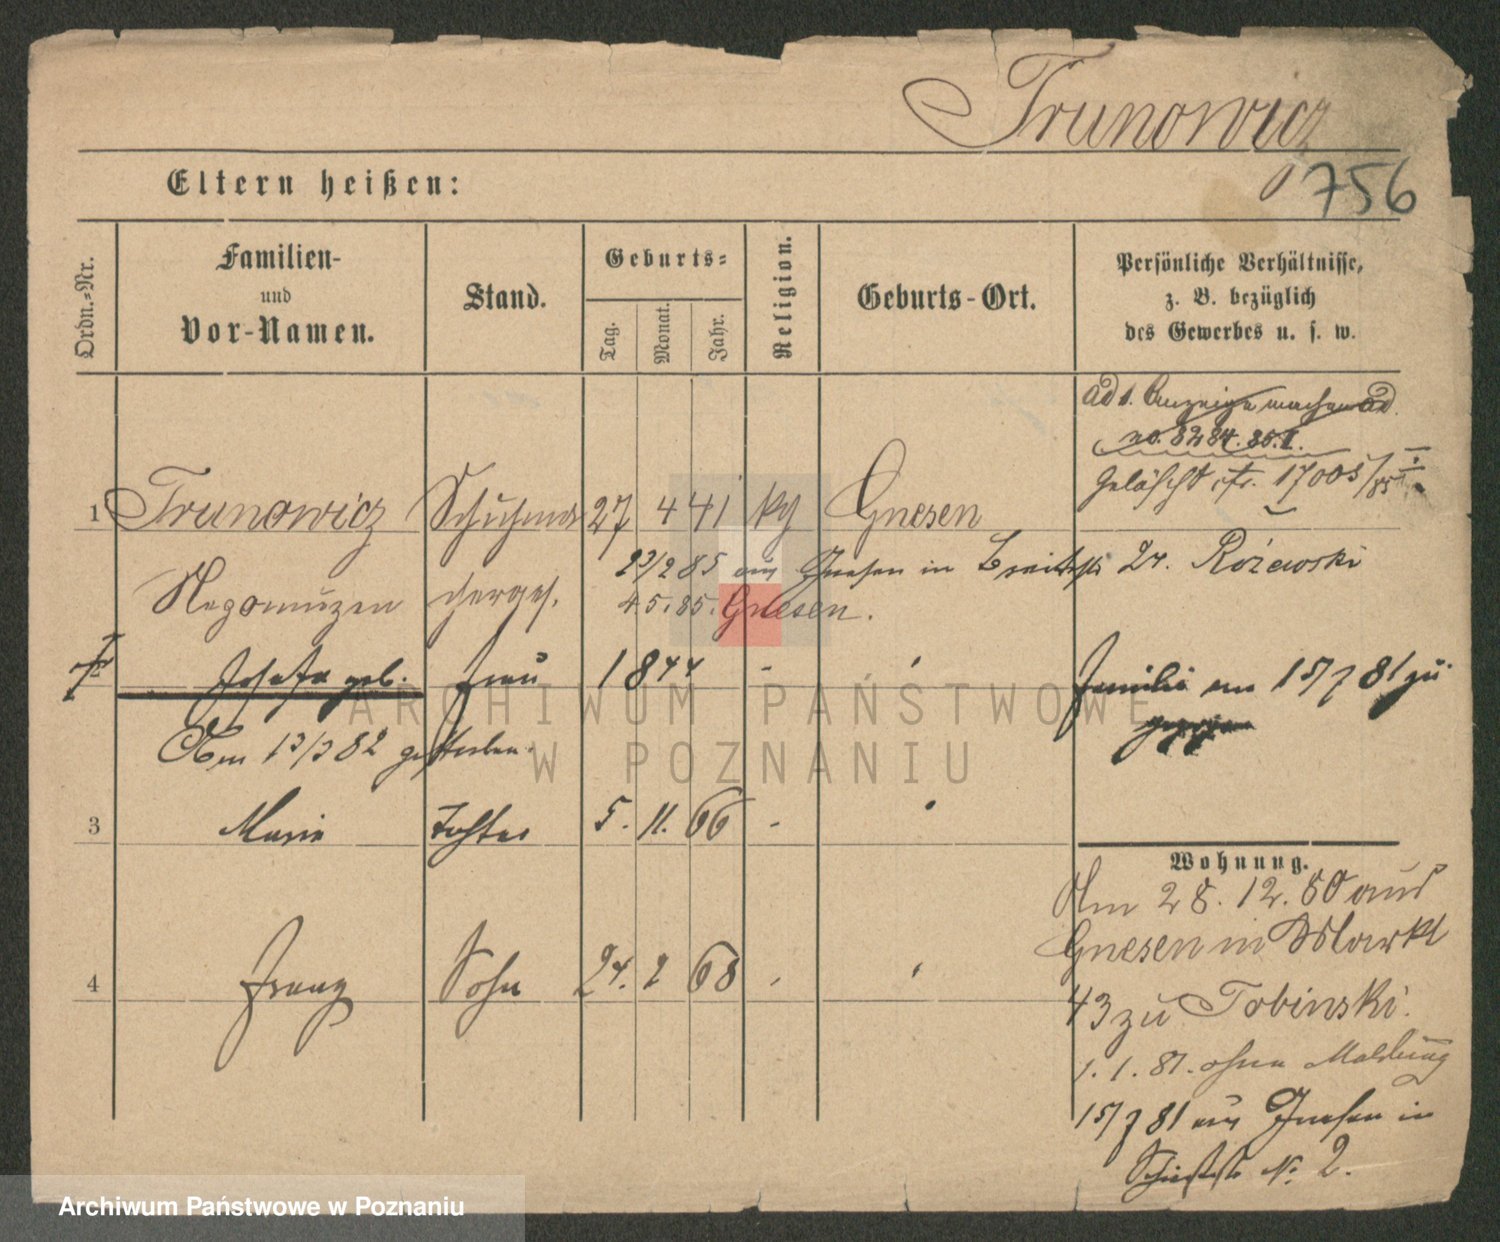 Trunowicz
756
Eltern heißen:
Ordn.-Nr.
Familien-
und
Vor-Namen.
Stand.
Geburts-
Tag.
Monat.
Jahr.
Religion.
Geburts-Ort.
Persönliche Verhältnisse,
z. B. bezüglich
des Gewerbes u. s. w.
ad 1. Anzeige machen ad
no. 3284. 85. I.
Gelöscht cfr. 17005/85 I
1 Trunowicz Schuhma 27 4 41 kg Gnesen
23/2 85 aus Gnesen in Breitestr 24. Rożewski
Nepomuzen cherges. 4.5.85. Gnesen.
2 Josefa geb. Frau 1844 - '
Familie am 15/7 81 zu
gezogen
Am 13/3 82 gestorben.
3 Marie Tochter 5. 11. 66 - '
Wohnung.
Am 28. 12. 80 aus
Gnesen in Markt
4 Franz Sohn 24. 2 68 - '
43 zu Tobinski.
1. 1. 81. ohne Meldung
15/7 81 aus Gnesen in
No 2.
ARCHIWUM PAŃSTWOWE
W POZNANIU
Archiwum Państwowe w Poznaniu